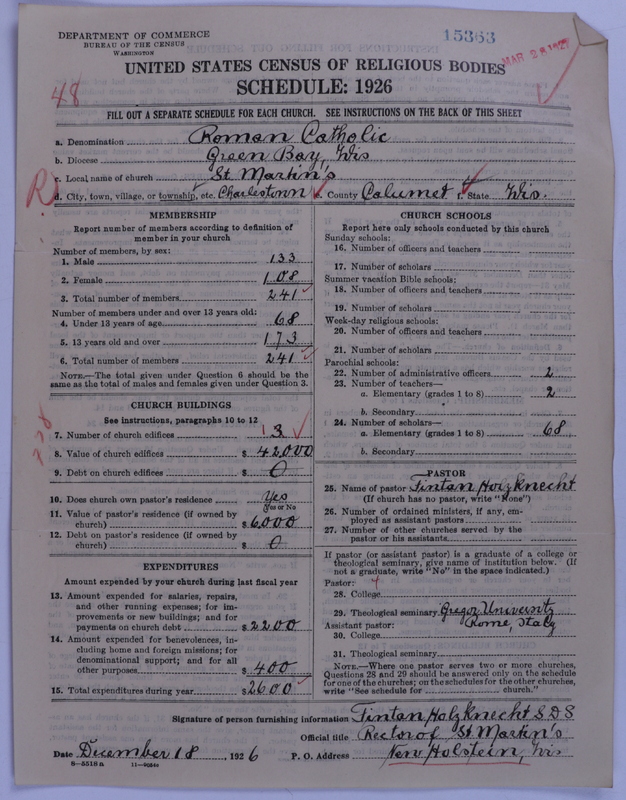 DEPARTMENT OF COMMERCE
BUREAU OF THE CENSUS
WASHINGTON
15363
MAR 28 1927
UNITED STATES CENSUS OF RELIGIOUS BODIES
SCHEDULE: 1926
48
FILL OUT A SEPARATE SCHEDULE FOR EACH CHURCH. SEE INSTRUCTIONS ON THE BACK OF THIS SHEET
a. Denomination Roman Catholic
b. Diocese Green Bay, Wis
c. Local name of church St. Martin's
R
d. City, town, village, or township, etc. Charlestown e. County Calumet f. State Wis.
MEMBERSHIP
Report number of members according to definition of
member in your church
Number of members, by sex:
1. Male 133
2. Female 108
3. Total number of members 241
Number of members under and over 13 years old:
4. Under 13 years of age 68
5. 13 years old and over 173
6. Total number of members 241
NOTE.—The total given under Question 6 should be
same as the total of males and females given under Question 3.
CHURCH BUILDINGS
See instructions, paragraphs 10 to 12
7. Number of church edifices 1 3
8. Value of church edifices $ 42000
9. Debt on church edifices $ 0
10. Does church own pastor's residence Yes
Yes or No
11. Value of pastor's residence (if owned by
church) $ 6,000
12. Debt on pastor's residence (if owned by
church) $ 0
EXPENDITURES
Amount expended by your church during last fiscal year
13. Amount expended for salaries, repairs,
and other running expenses; for im-
provements or new buildings; and for
payments on church debt $ 2200
14. Amount expended for benevolences, in-
cluding home and foreign missions; for
denominational support; and for all
other purposes $ 400
15. Total expenditures during year $ 2600
CHURCH SCHOOLS
Report here only schools conducted by this church
Sunday schools:
16. Number of officers and teachers
17. Number of scholars
Summer vacation Bible schools:
18. Number of officers and teachers
19. Number of scholars
Week-day religious schools:
20. Number of officers and teachers
21. Number of scholars
Parochial schools:
22. Number of administrative officers 2
23. Number of teachers—
a. Elementary (grades 1 to 8) 2
b. Secondary
24. Number of scholars—
a. Elementary (grades 1 to 8) 68
b. Secondary
PASTOR
25. Name of pastor Fintan Holzknecht
(If church has no pastor, write "None")
26. Number of ordained ministers, if any, em-
ployed as assistant pastors
27. Number of other churches served by the
pastor or his assistants
If pastor (or assistant pastor) is a graduate of a college or
theological seminary, give name of institution below. (If
not a graduate, write "No" in the space indicated.)
Pastor:
28. College
29. Theological seminary Gregor University
Assistant pastor: Rome, Italy
30. College
31. Theological seminary
NOTE.—Where one pastor serves two or more churches,
Questions 28 and 29 should be answered only on the schedule
for one of the churches; on the schedules for the other churches,
write "See schedule for church."
Signature of person furnishing information Fintan Holzknecht S.D.S
Official title Rector of St. Martin's
Date December 18, 1926 P. O. Address New Holstein, Wis
8—5518 a